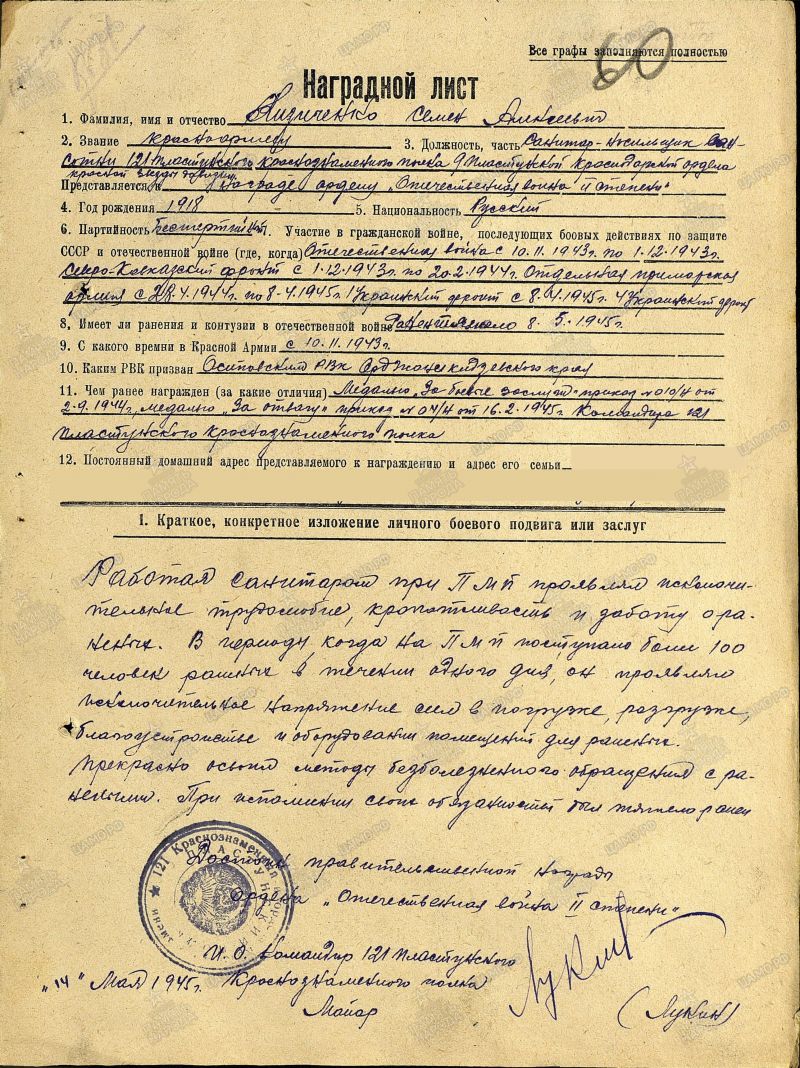 Все графы заполняются полностью
60
Наградной лист
1. Фамилия, имя и отчество Кизиченко Семен Алексеевич
2. Звание красноармеец 3. Должность, часть Санитар-носильщик сан-
сотни 121 Пластунского краснознаменного полка 9 Пластунской Краснодарской ордена
красной звезды дивизии
Представляется к награде ордену „Отечественная война II степени"
4. Год рождения 1918 5. Национальность Русский
6. Партийность Беспартийный 7. Участие в гражданской войне, последующих боевых действиях по защите
СССР и отечественной войне (где, когда) Отечественная война с 10.11.1943г. по 1.12.1943г.
Северо-Кавказский фронт с 1.12.1943г. по 20.2.1944г. Отдельная приморская
армия с 4.1944г. по 8.4.1945г. 1 Украинский фронт с 8.4.1945г. 4 Украинский фронт
8. Имеет ли ранения и контузии в отечественной войне Ранен тяжело 8.5.1945г.
9. С какого времни в Красной Армии с 10.11.1943г.
10. Каким РВК призван РВК Орджоникидзевского края
11. Чем ранее награжден (за какие отличия) Медалью „За боевые заслуги" приказ № 010/н от
2.9.1944г. медалью „За отвагу" приказ № 04/н от 16.2.1945г. Командира 121
Пластунского Краснознаменного полка
12. Постоянный домашний адрес представляемого к награждению и адрес его семьи
I. Краткое, конкретное изложение личного боевого подвига или заслуг
Работая санитаром при ПМП проявлял исключи-
тельное трудолюбие, кропотливость и заботу о ра-
неных. В периоды, когда на ПМП поступало более 100
человек раненых в течении одного дня, он проявлял
исключительное напряжение сил в погрузке, разгрузке,
благоустройстве и оборудовании помещений для раненых.
Прекрасно освоил методы безболезненного обращения с ра-
неными. При исполнении своих обязаностей был тяжело ранен
Достоин правительственной награды
Ордена „Отечественная война II степени"
И. д. Командир 121 Пластунского
„14" Мая 1945г. Краснознаменного полка
Майор (Лукин)
★ 121 Краснознаменный
ПЛАСТУН
ЦАМО РФ